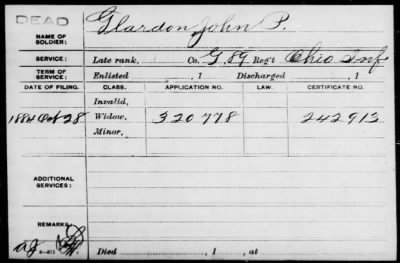 DEAD
NAME OF SOLDIER: Glardon, John P.
SERVICE: Late rank, Co. G, 89 Reg't Ohio Inf
TERM OF SERVICE: Enlisted , 1 Discharged , 1
DATE OF FILING. CLASS. APPLICATION NO. LAW. CERTIFICATE NO.
Invalid,
1884 Oct 28 Widow, 320778 242913
Minor,
ADDITIONAL SERVICES:
REMARKS:
Died , 1 , at